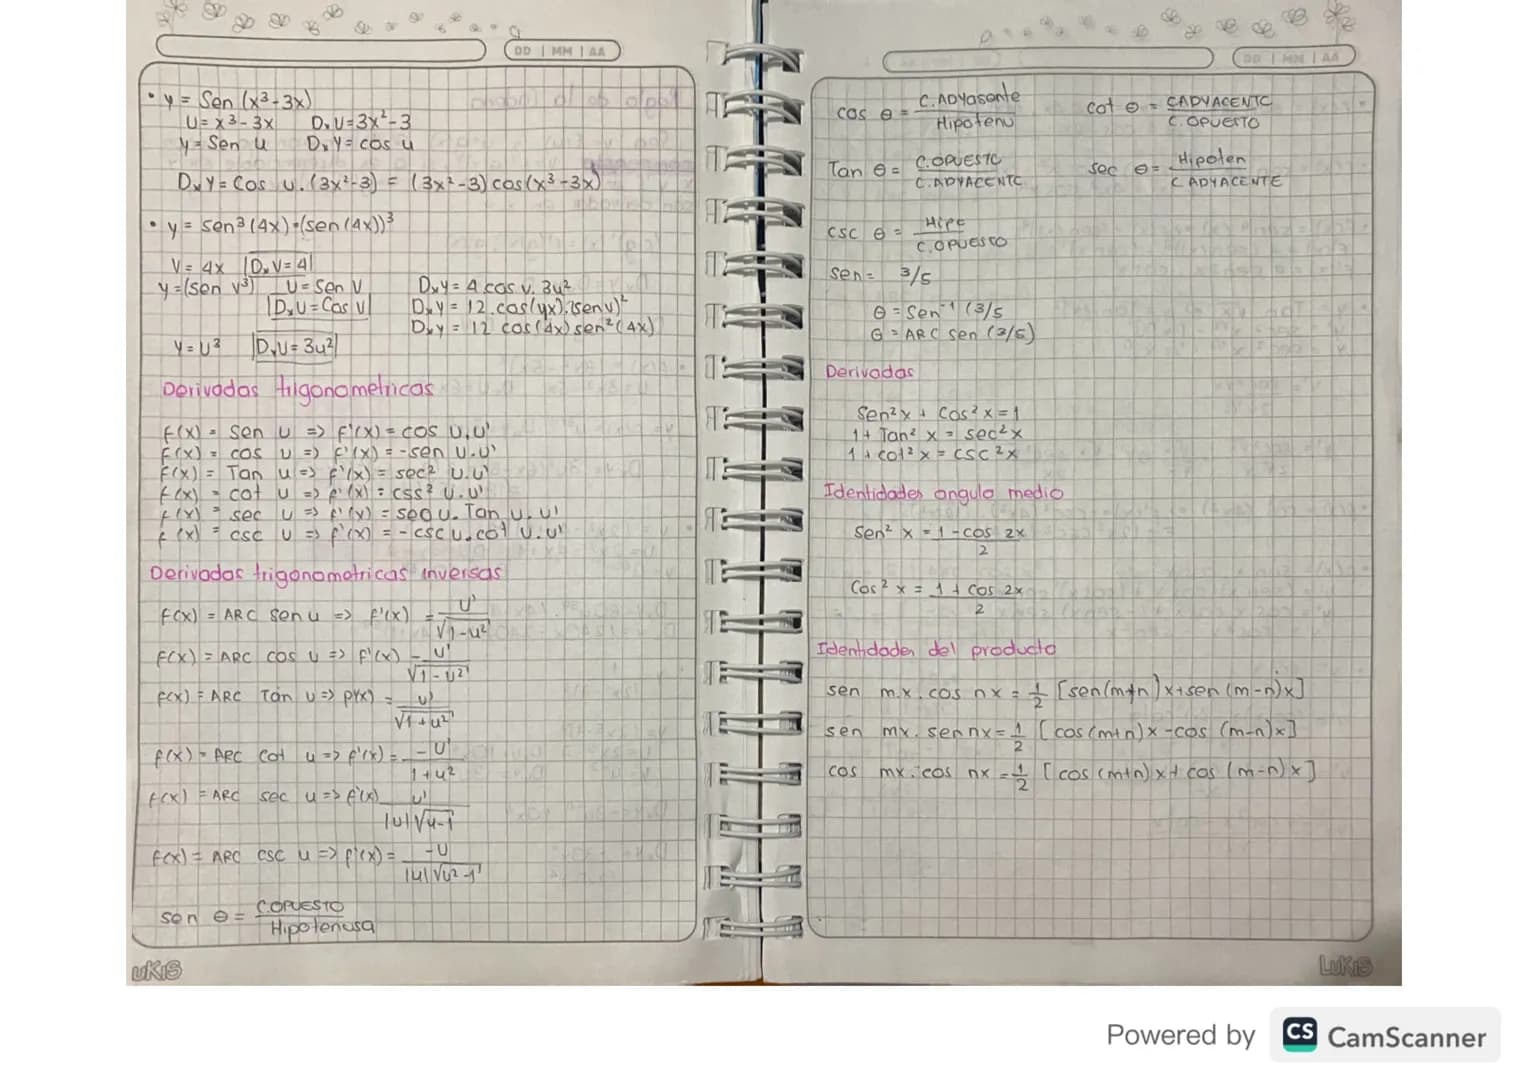 DD | MM | AA
• y = Sen (x³-3x)
U = x³-3x DxU=3x²-3
y = Sen u DxY= cos u
DxY= Cos u.(3x²-3) = (3x²-3) cos(x³-3x)
• y = sen³(4x)=(sen(4x))³
V= 4x |DxV=4|
y=(sen v³) U= Sen V DxY= 4 cos v. 3u²
|DxU= Cos V| DxY= 12.cos(yx).(senv)²
DxY = 12 cos(4x) sen²(4x)
Y=U³ |DxU=3u²|
Derivadas trigonometricas
f(x) = sen u => f'(x) = cos u.u'
f(x) = cos u => f'(x) = -sen u.u'
f(x) = Tan u => f'(x) = sec² u.u'
f(x) = cot u => f'(x) = css² u.u'
f(x) = sec u => f'(x) = sec u. Tan u. u'
f(x) = csc u => f'(x) = -csc u.cot u.u'
Derivadas trigonometricas inversas
f(x) = ARC sen u => f'(x) = u'
√1-u²
f(x) = ARC cos u => f'(x) - u'
√1-u²
f(x) = ARC Tan u => f'(x) = u'
√1+u²
f(x) = ARC cot u => f'(x) = -u'
1+u²
f(x) = ARC sec u => f'(x) u'
|u|√u-1
f(x) = ARC csc u => f'(x) = -U
|u|√u²-1
sen θ = C.OPUESTO
Hipotenusa
LUKIS
DD | MM | AA
cos θ = C.ADYasente cot θ = CADYACENTC
Hipotenu C.OPUESTO
Tan θ = C.OPUESTC sec θ = Hipoten
C.ADYACENTC C ADYACENTE
csc θ = Hipe
C.OPUESTO
sen = 3/5
θ = Sen⁻¹ (3/5
θ = ARC sen (3/5)
Derivadas
Sen²x + Cos²x = 1
1 + Tan² x = sec²x
1 + cot² x = csc²x
Identidades angulo medio
Sen² x = 1-cos 2x
2
Cos² x = 1 + cos 2x
2
Identidades del producto
sen m.x. cos nx = 1/2 [sen(m+n)x+sen(m-n)x]
sen mx. sen nx = 1/2 [cos(m+n)x-cos (m-n)x]
cos mx. cos nx = 1/2 [cos(m+n)x+cos (m-n)x]
LUKIS
Powered by CS CamScanner